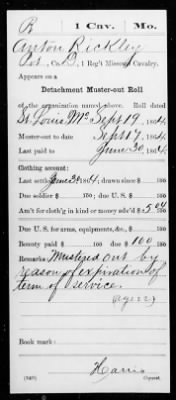 R 1 Cav. Mo.
Anton Rickley
Pvt., Co. D, 1 Reg't Missouri Cavalry.
Appears on a
Detachment Muster-out Roll
of the organization named above. Roll dated
St. Louis Mo Sept 19, 1864.
Muster-out to date Sept 17, 1864.
Last paid to June 30, 1864.
Clothing account:
Last settled June 30, 1864; drawn since $ 100
Due soldier $ 100; due U.S. $ 100
Am't for cloth'g in kind or money adv'd $ 5 04 100
Due U.S. for arms, equipments, &c., $ 100
Bounty paid $ 100; due $ 100 100
Remarks: Mustered out by
reason of expiration of
term of service.
Book mark:
Harris
Copyist.